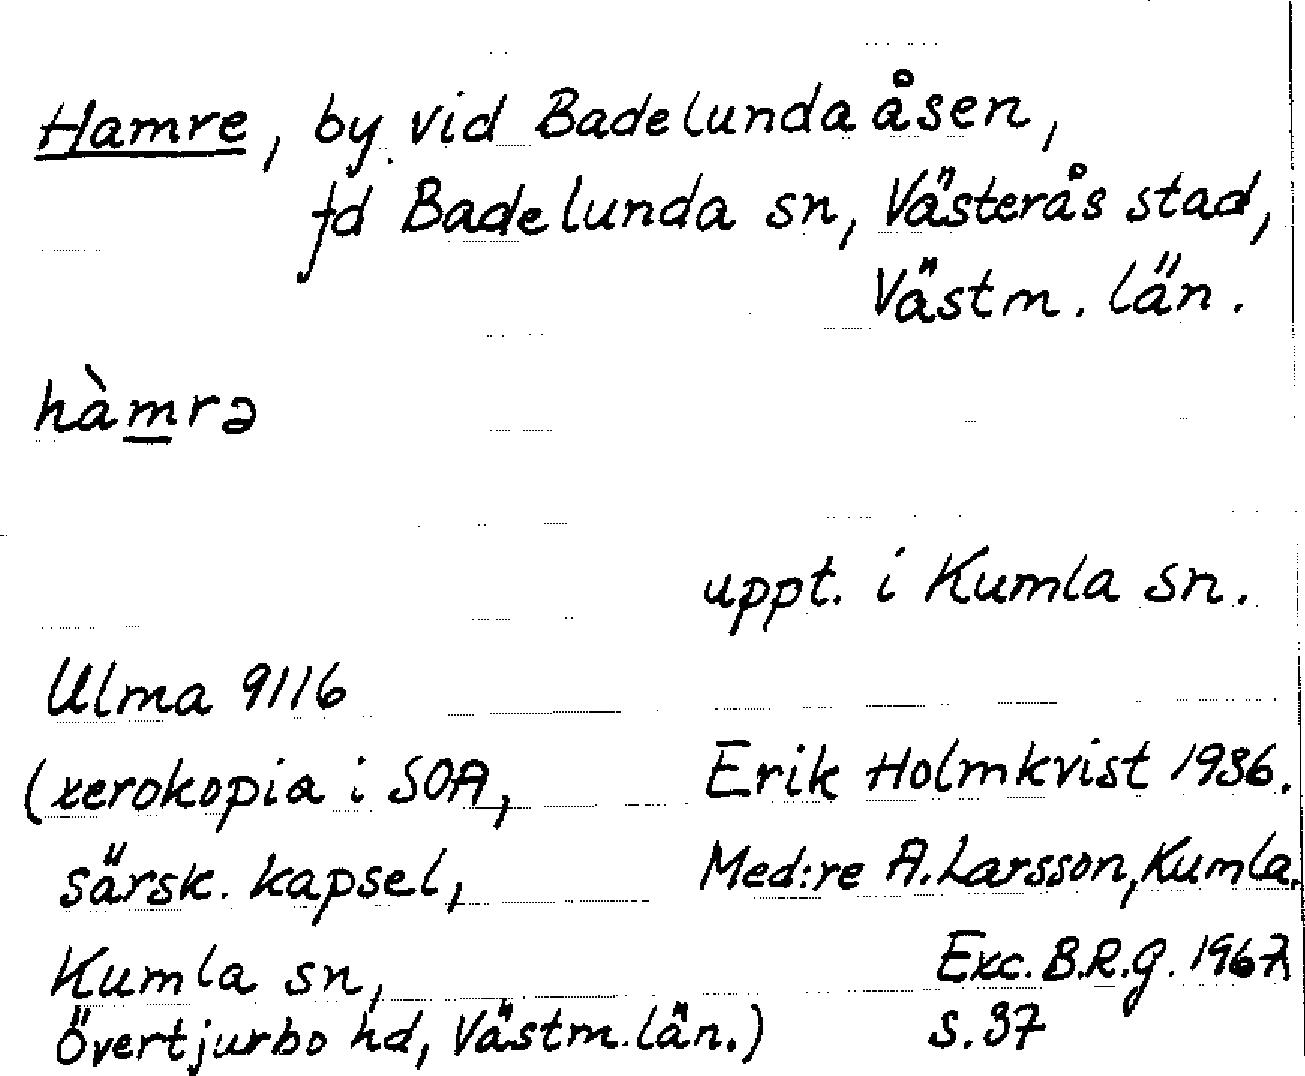 Hamre, by vid Badelundaåsen,
fd Badelunda sn, Västerås stad,
Västm. län.
hàmrə
uppt. i Kumla sn.
Ulma 9116
(xerokopia i SOA, Erik Holmkvist 1936.
särsk. kapsel, Med:re A. Larsson, Kumla.
Kumla sn, Exc. B.R.g. 1967.
Övertjurbo hd, Västm. län.) s. 37